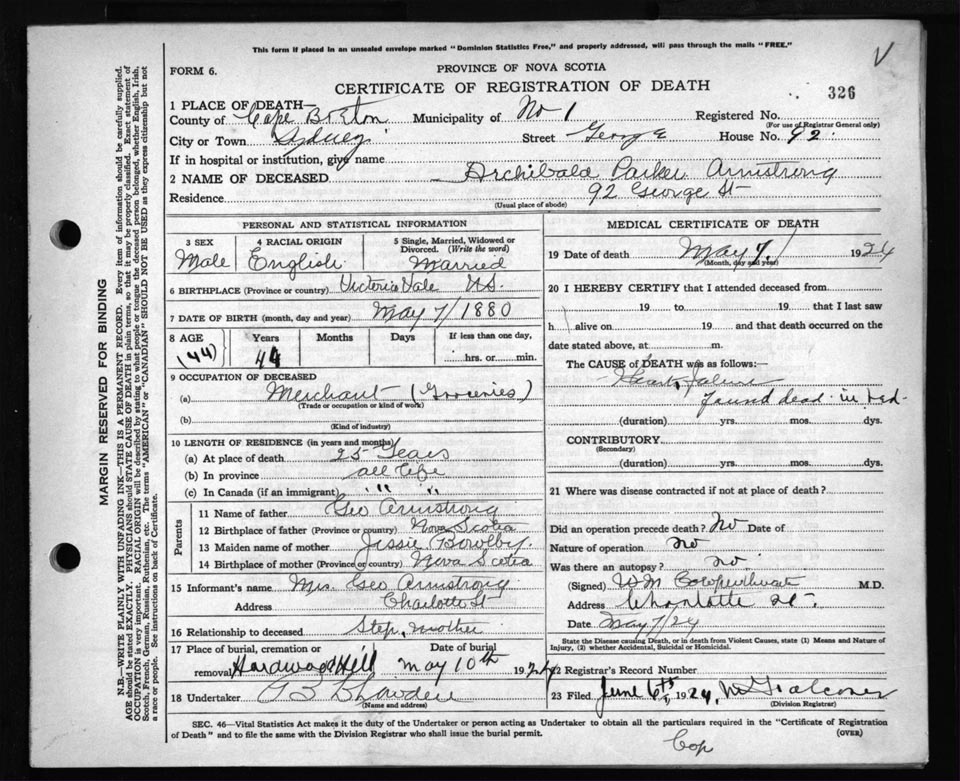 This form if placed in an unsealed envelope marked "Dominion Statistics Free," and properly addressed, will pass through the mails "FREE."
FORM 6.
PROVINCE OF NOVA SCOTIA
CERTIFICATE OF REGISTRATION OF DEATH
326
1 PLACE OF DEATH—
County of Cape Breton Municipality of No 1 Registered No.
(For use of Registrar General only)
City or Town Sydney Street George House No. 92
If in hospital or institution, give name
2 NAME OF DECEASED Archibald Parker Armstrong
Residence 92 George St
(Usual place of abode)
PERSONAL AND STATISTICAL INFORMATION
3 SEX
Male
4 RACIAL ORIGIN
English
5 Single, Married, Widowed or Divorced. (Write the word)
Married
6 BIRTHPLACE (Province or country) Victoria Vale N.S.
7 DATE OF BIRTH (month, day and year) May 7/1880
8 AGE Years Months Days If less than one day,
(44) 44 hrs. or min.
9 OCCUPATION OF DECEASED
(a) Merchant (Groceries)
(Trade or occupation or kind of work)
(b)
(Kind of industry)
10 LENGTH OF RESIDENCE (in years and months)
(a) At place of death 25 Years
(b) In province all life
(c) In Canada (if an immigrant) " "
Parents
11 Name of father Geo Armstrong
12 Birthplace of father (Province or country) Nova Scotia
13 Maiden name of mother Jessie Bowlby
14 Birthplace of mother (Province or country) Nova Scotia
15 Informant's name Mrs. Geo Armstrong
Address Charlotte St
16 Relationship to deceased Step Mother
17 Place of burial, cremation or Date of burial
removal Hardwood Hill May 10th 1924
18 Undertaker
(Name and address)
MEDICAL CERTIFICATE OF DEATH
19 Date of death May 7. 1924
(Month, day and year)
20 I HEREBY CERTIFY that I attended deceased from
19 to 19 that I last saw
h alive on 19 and that death occurred on the
date stated above, at m.
The CAUSE of DEATH was as follows:
Heart failure
found dead in bed
(duration) yrs. mos. dys.
CONTRIBUTORY
(Secondary)
(duration) yrs. mos. dys.
21 Where was disease contracted if not at place of death?
Did an operation precede death? No Date of
Nature of operation No
Was there an autopsy? No
(Signed) M.D.
Address Charlotte St.
Date May 7/24
State the Disease causing Death, or in death from Violent Causes, state (1) Means and Nature of Injury, (2) whether Accidental, Suicidal or Homicidal.
22 Registrar's Record Number
23 Filed June 6th 1924,
(Division Registrar)
SEC. 46—Vital Statistics Act makes it the duty of the Undertaker or person acting as Undertaker to obtain all the particulars required in the "Certificate of Registration
of Death" and to file the same with the Division Registrar who shall issue the burial permit.
(OVER)
Cop
MARGIN RESERVED FOR BINDING
N.B.—WRITE PLAINLY WITH UNFADING INK—THIS IS A PERMANENT RECORD. Every item of information should be carefully supplied.
AGE should be stated EXACTLY. PHYSICIANS should STATE CAUSE OF DEATH in plain terms, so that it may be properly classified. Exact statement of
OCCUPATION is very important. RACIAL ORIGIN will be described by stating to what people or tongue the deceased person belonged, whether English, Irish,
Scotch, French, German, Russian, Ruthenian, etc. The terms "AMERICAN" or "CANADIAN" SHOULD NOT BE USED as they express citizenship but not
a race or people. See instructions on back of Certificate.